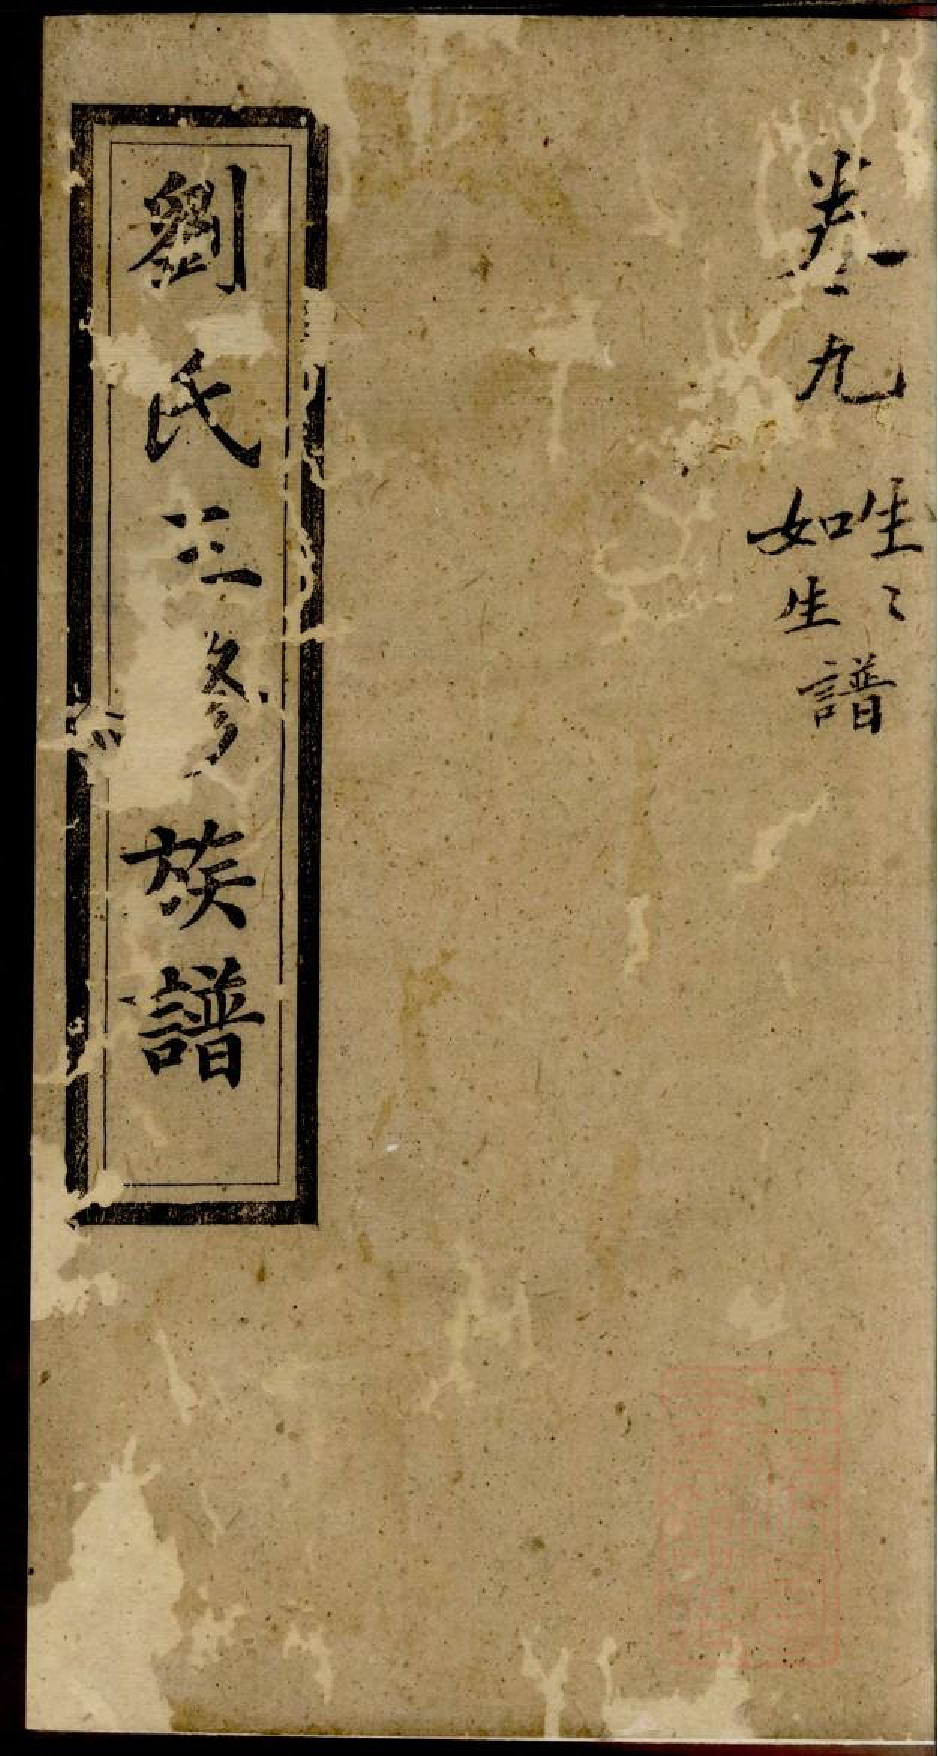 卷九
生〻
如生
譜
劉氏三修族譜